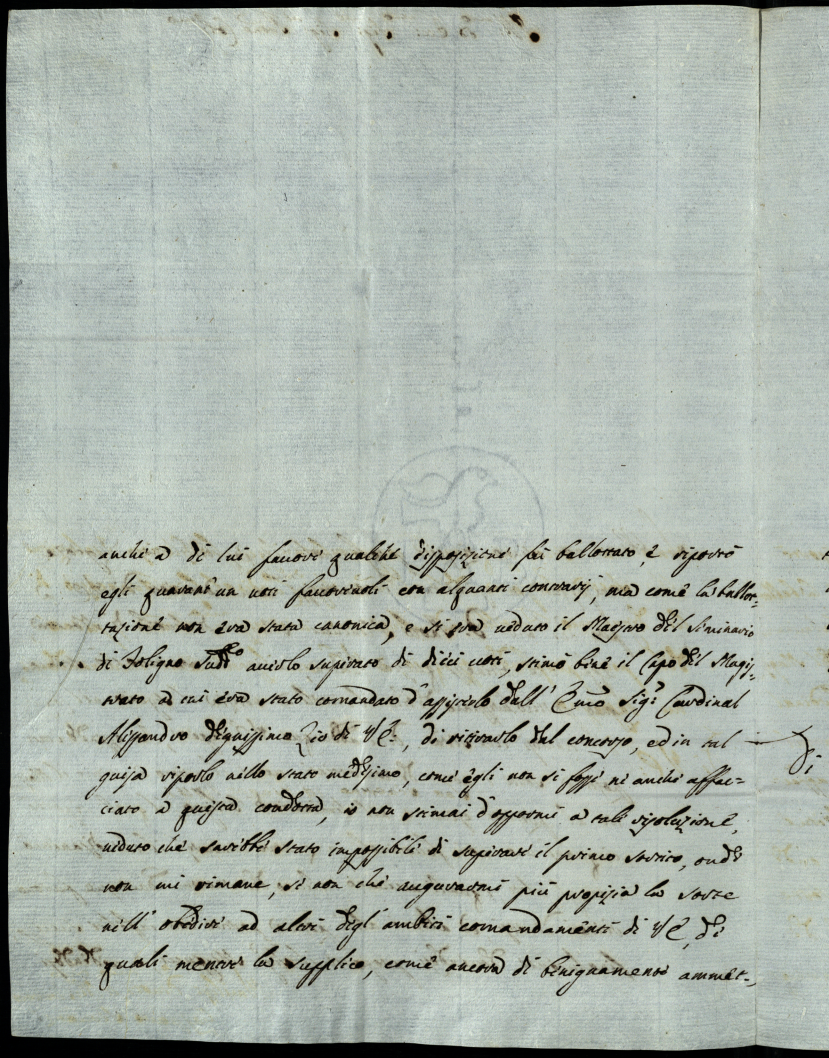 anche a di lui favore qualche disposizione fu ballottato, e riportò
egli quarant'un voti favorevoli con alquanti contrarij, ma come la ballot-
tazione non era stata canonica, e si era veduto il Maestro del Seminario
di Foligno Sudd.o averlo superato di dieci voti, stimò bene il Capo del Magi-
strato a cui era stato comandato d'assisterlo dall' Emo Sig.r Cardinal
Alessandro degnissimo Zio di V.E., di ritirarlo dal concorso, ed in tal
guisa riporlo nello stato medesimo, come egli non si fosse ne anche affac-
ciato a questa condotta, io non stimai d'oppormi a tale risoluzione,
veduto che sarebbe stato impossibile di superare il primo , onde
non mi rimane, se non che augurarmi più propizia la sorte
nell' obedire ad altri degl'ambiti comandamenti di V.E., de
quali mentre la supplico, come ancora di benignamente ammet-